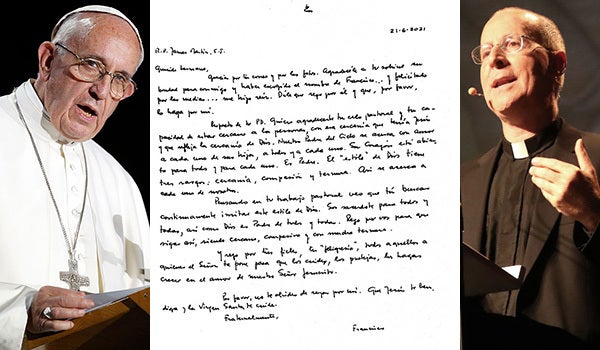 21-6-2021
R.P. James Martin, S.J.
Querido hermano,
Gracias por tu correo y por las fotos. Agradecele a tu sobrino su
bondad para conmigo y haber escogido el nombre de Francisco... y felicitalo
por las medias... me hizo reir. Dile que rezo por él y que, por favor,
lo haga por mí.
Respecto de tu P.D. Quiero agradecerte tu celo pastoral y tu ca-
pacidad de estar cercano a las personas, con esa cercanía que tenía Jesús
y que refleja la cercanía de Dios. Nuestro Padre del Cielo se acerca con amor
a cada uno de sus hijos, a todos y a cada uno. Su corazón está abier-
to para todos y para cada uno. Es Padre. El "estilo" de Dios tiene
tres rasgos: cercanía, compasión y ternura. Así se acerca a
cada uno de nosotros.
Pensando en tu trabajo pastoral veo que tú buscas
continuamente imitar este estilo de Dios. Sos sacerdote para todos y
todas, así como Dios es Padre de todos y todas. Rezo por vos para que
sigas así, siendo cercano, compasivo y con mucha ternura.
Y rezo por tus fieles, tu "feligresía", todos aquellos a
quienes el Señor te pone para que los cuides, los protejas, los hagas
crecer en el amor de nuestro Señor Jesucristo.
Por favor, no te olvides de rezar por mí. Que Jesús te ben-
diga y la Virgen Santa te cuide.
Fraternalmente,
Francisco